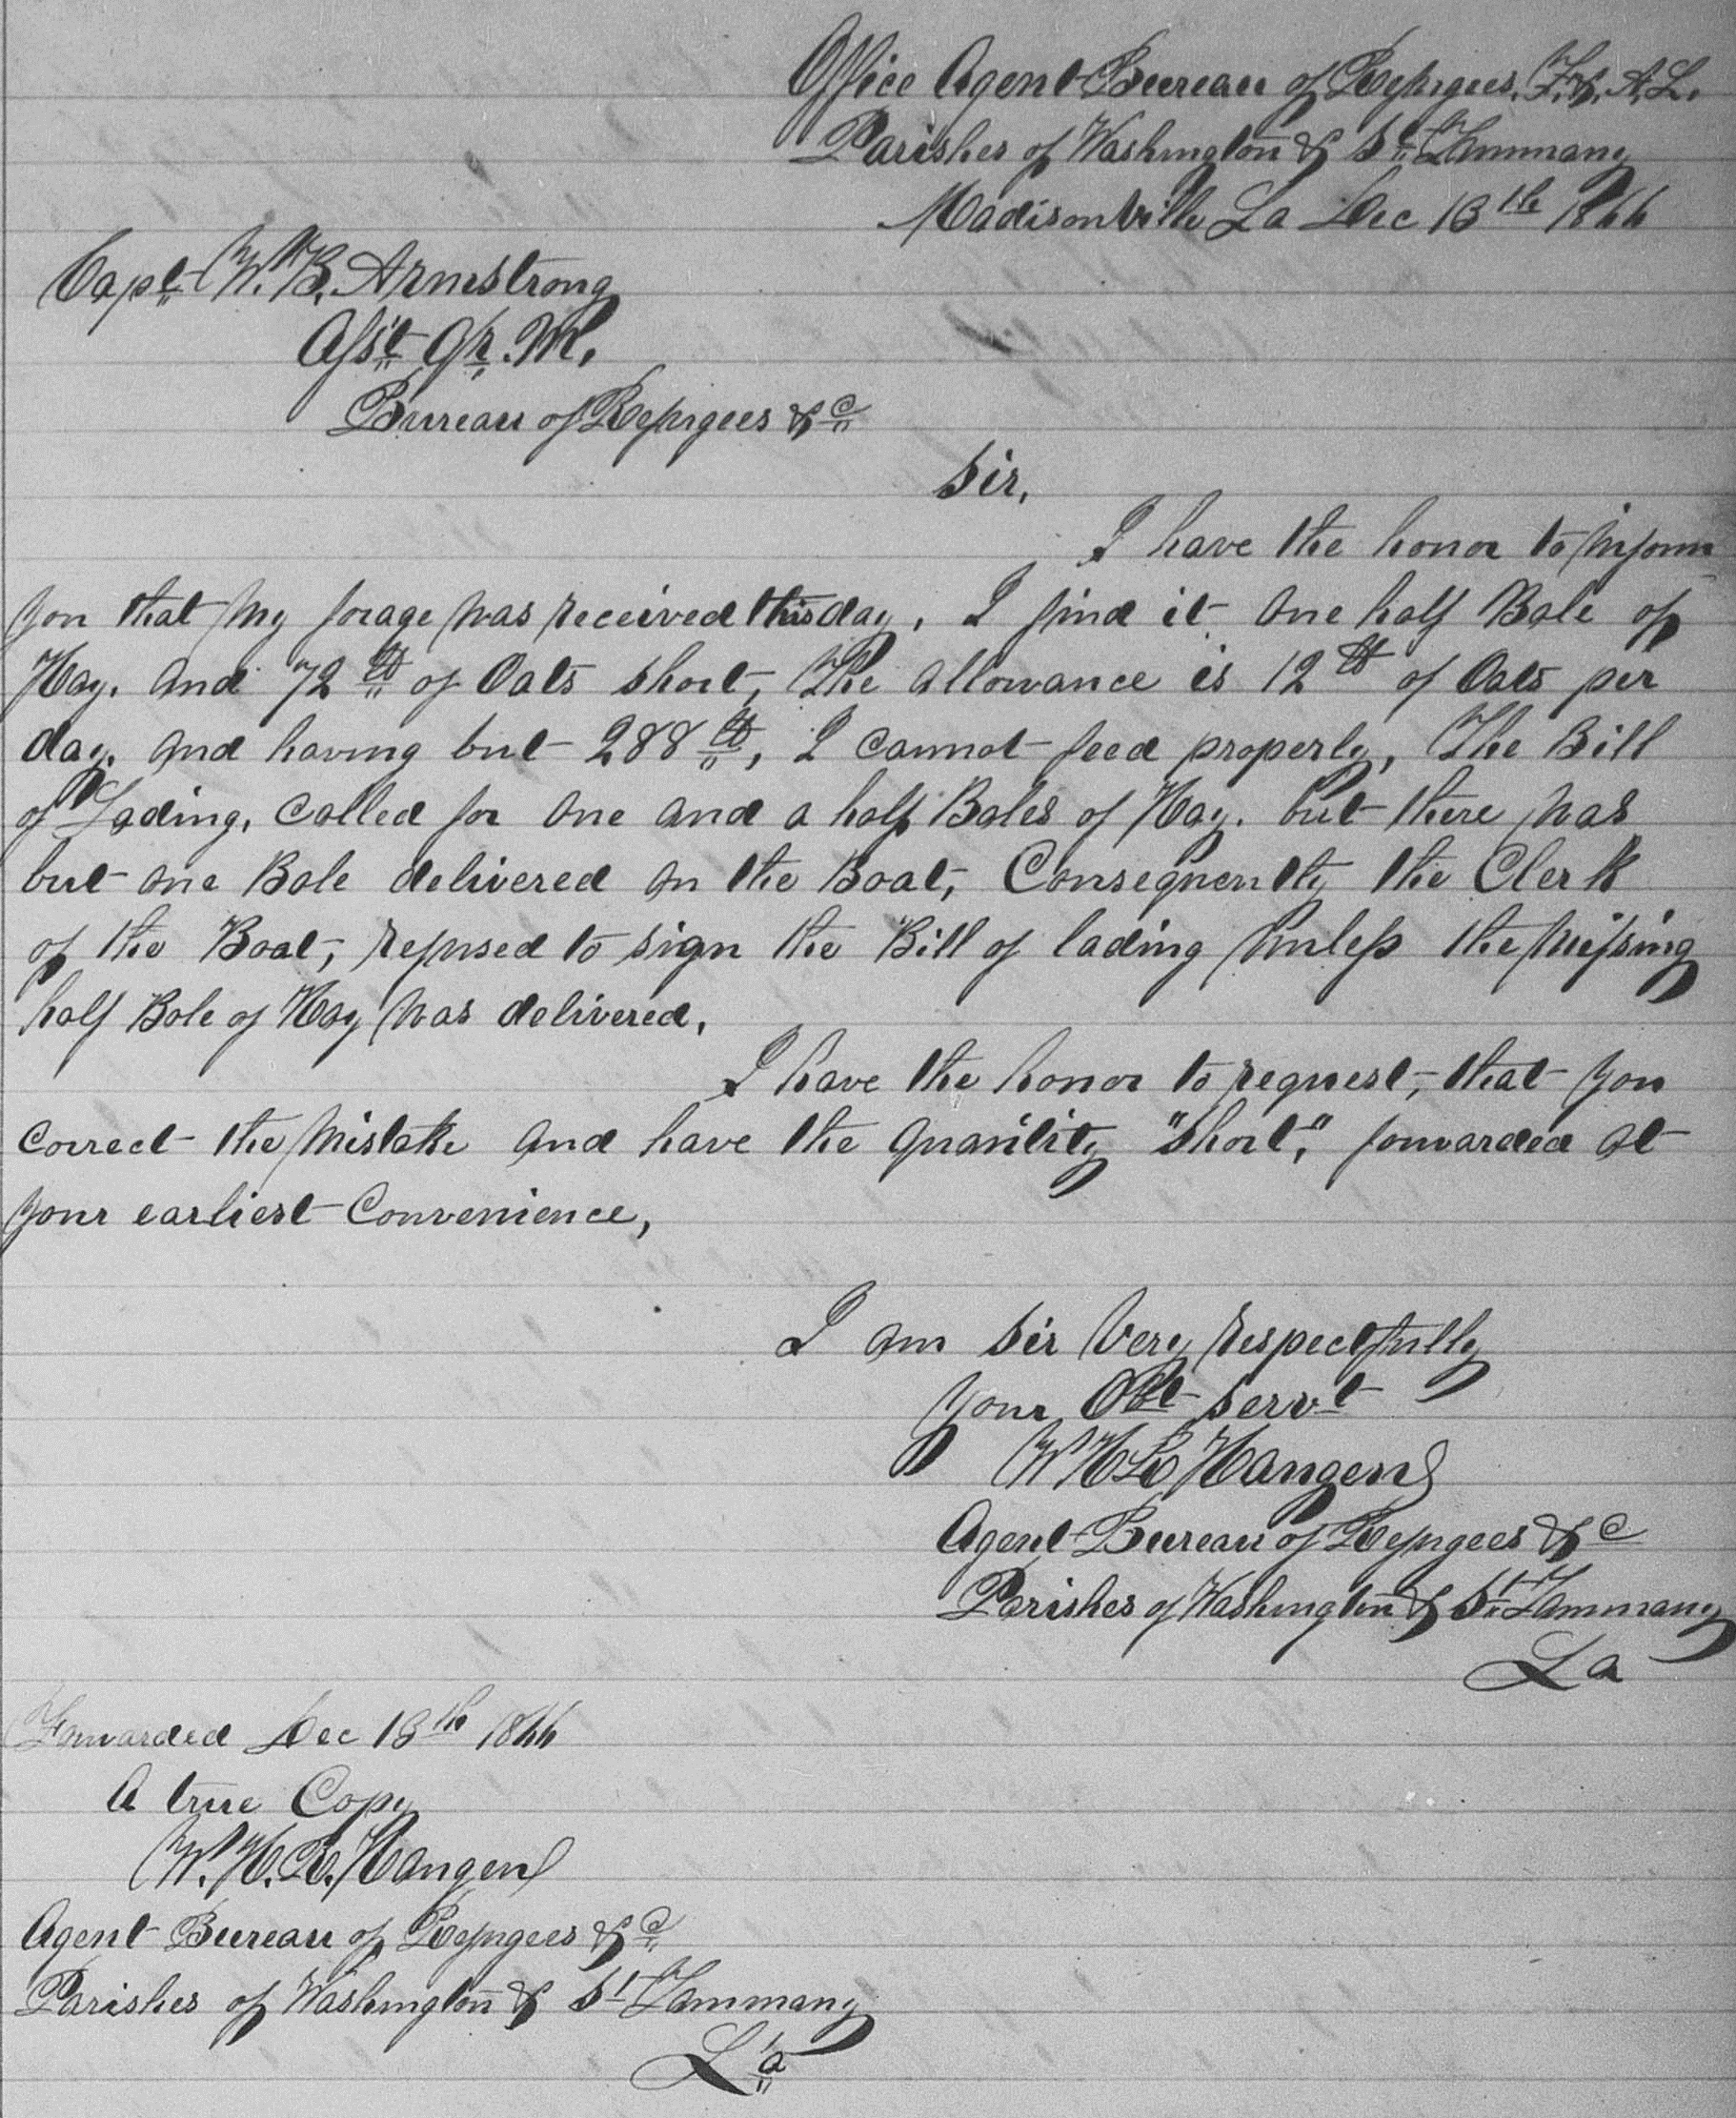 Office Agent Bureau of Refugees. F. & A. L.
Parishes of Washington & St Tammany
Madisonville La Dec 13th 1866
Capt W. B. Armstrong
Asst Qr. M.
Bureau of Refugees &c
Sir,
I have the honor to inform
you that my forage was received this day, I find it one half Bale of
Hay. and 72 lb of Oats short, The allowance is 12 lb of Oats per
day. and having but 288 lb, I cannot feed properly, The Bill
of Lading, called for one and a half Bales of Hay. but there was
but one Bale delivered on the Boat, Consequently the Clerk
of the Boat, refused to sign the Bill of lading unless the missing
half Bale of Hay was delivered,
I have the honor to request, that you
correct the mistake and have the quantity "short," forwarded at
your earliest Convenience,
I am Sir Very respectfully
your Obt servt
W H R Hangen
Agent Bureau of Refugees &c
Parishes of Washington & St Tammany
La
Forwarded Dec 13th 1866
A true Copy
W. H. R. Hangen
Agent Bureau of Refugees &c
Parishes of Washington & St Tammany
La